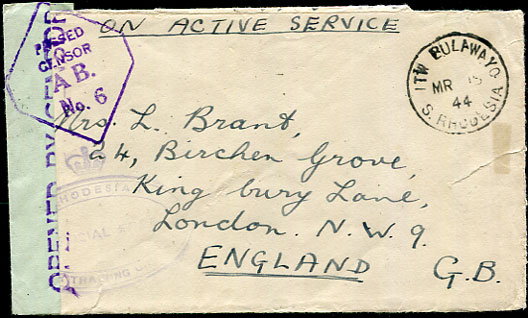 ON ACTIVE SERVICE
PASSED
CENSOR
A B.
No. 6
OPENED BY CENSOR
ITW BULAWAYO
MR 15
44
S. RHODESIA
Mrs. L. Brant,
24, Birchen Grove,
Kingsbury Lane,
London. N.W.9.
ENGLAND G.B.
RHODESIA
TRAINING